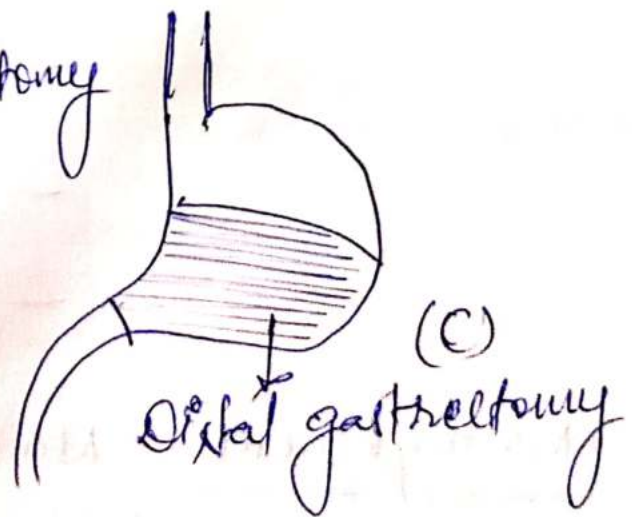 tomy
(C)
Distal gastrectomy